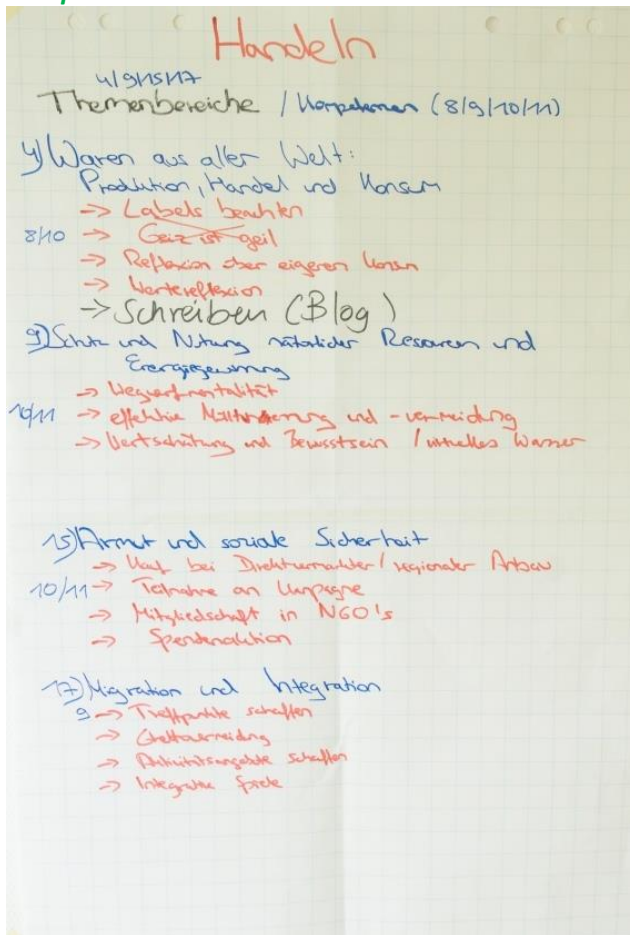 Handeln
4/9/15/17
Themenbereiche / Kompetenzen (8/9/10/11)
4) Waren aus aller Welt:
Produktion, Handel und Konsum
-> Labels beachten
8/10 -> Geiz ist geil
-> Reflexion über eigenen Konsum
-> Wertereflexion
-> Schreiben (Blog)
9) Schutz und Nutzung natürlicher Ressourcen und
Energiegewinnung
-> Wegwerfmentalität
10/11 -> effektive Mülltrennung und -vermeidung
-> Wertschätzung und Bewusstsein / virtuelles Wasser
15) Armut und soziale Sicherheit
-> Kauf bei Direktvermarkter / regionaler Anbau
10/11 -> Teilnahme an Kampagne
-> Mitgliedschaft in NGO's
-> Spendenaktion
17) Migration und Integration
9 -> Treffpunkte schaffen
-> Ghettovermeidung
-> Aktivitätsangebote schaffen
-> Integrative